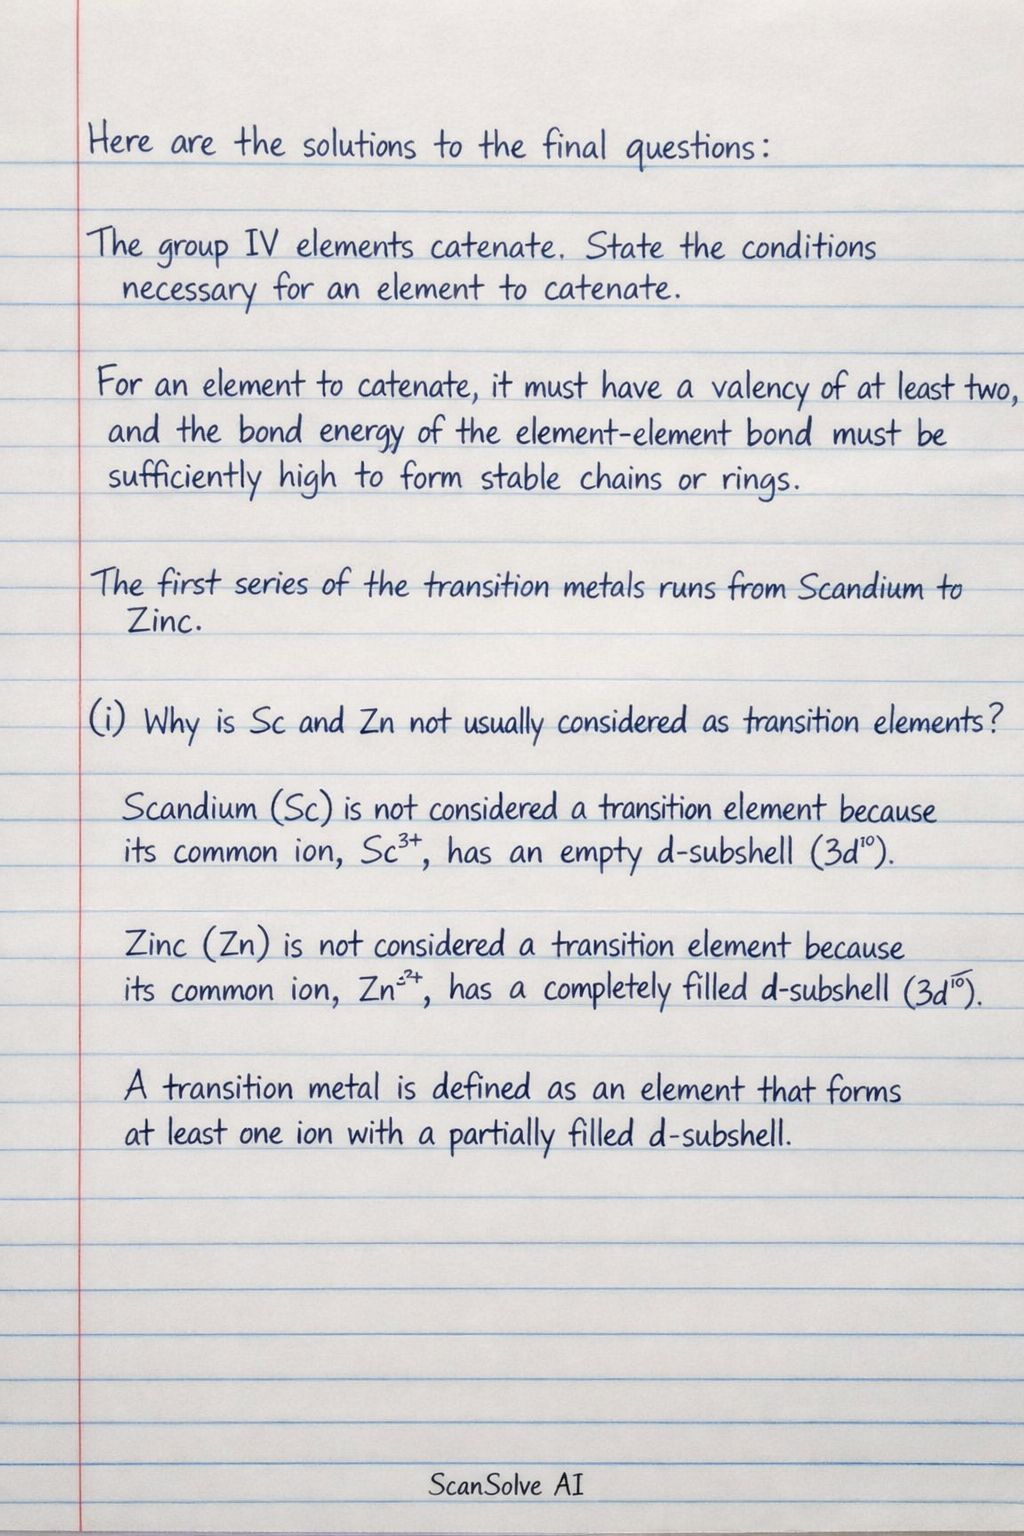 Here are the solutions to the final questions:
The group IV elements catenate. State the conditions
necessary for an element to catenate.
For an element to catenate, it must have a valency of at least two,
and the bond energy of the element-element bond must be
sufficiently high to form stable chains or rings.
The first series of the transition metals runs from Scandium to
Zinc.
(i) Why is Sc and Zn not usually considered as transition elements?
Scandium (Sc) is not considered a transition element because
its common ion, Sc³⁺, has an empty d-subshell (3d¹⁰).
Zinc (Zn) is not considered a transition element because
its common ion, Zn²⁺, has a completely filled d-subshell (3d¹⁰).
A transition metal is defined as an element that forms
at least one ion with a partially filled d-subshell.
ScanSolve AI